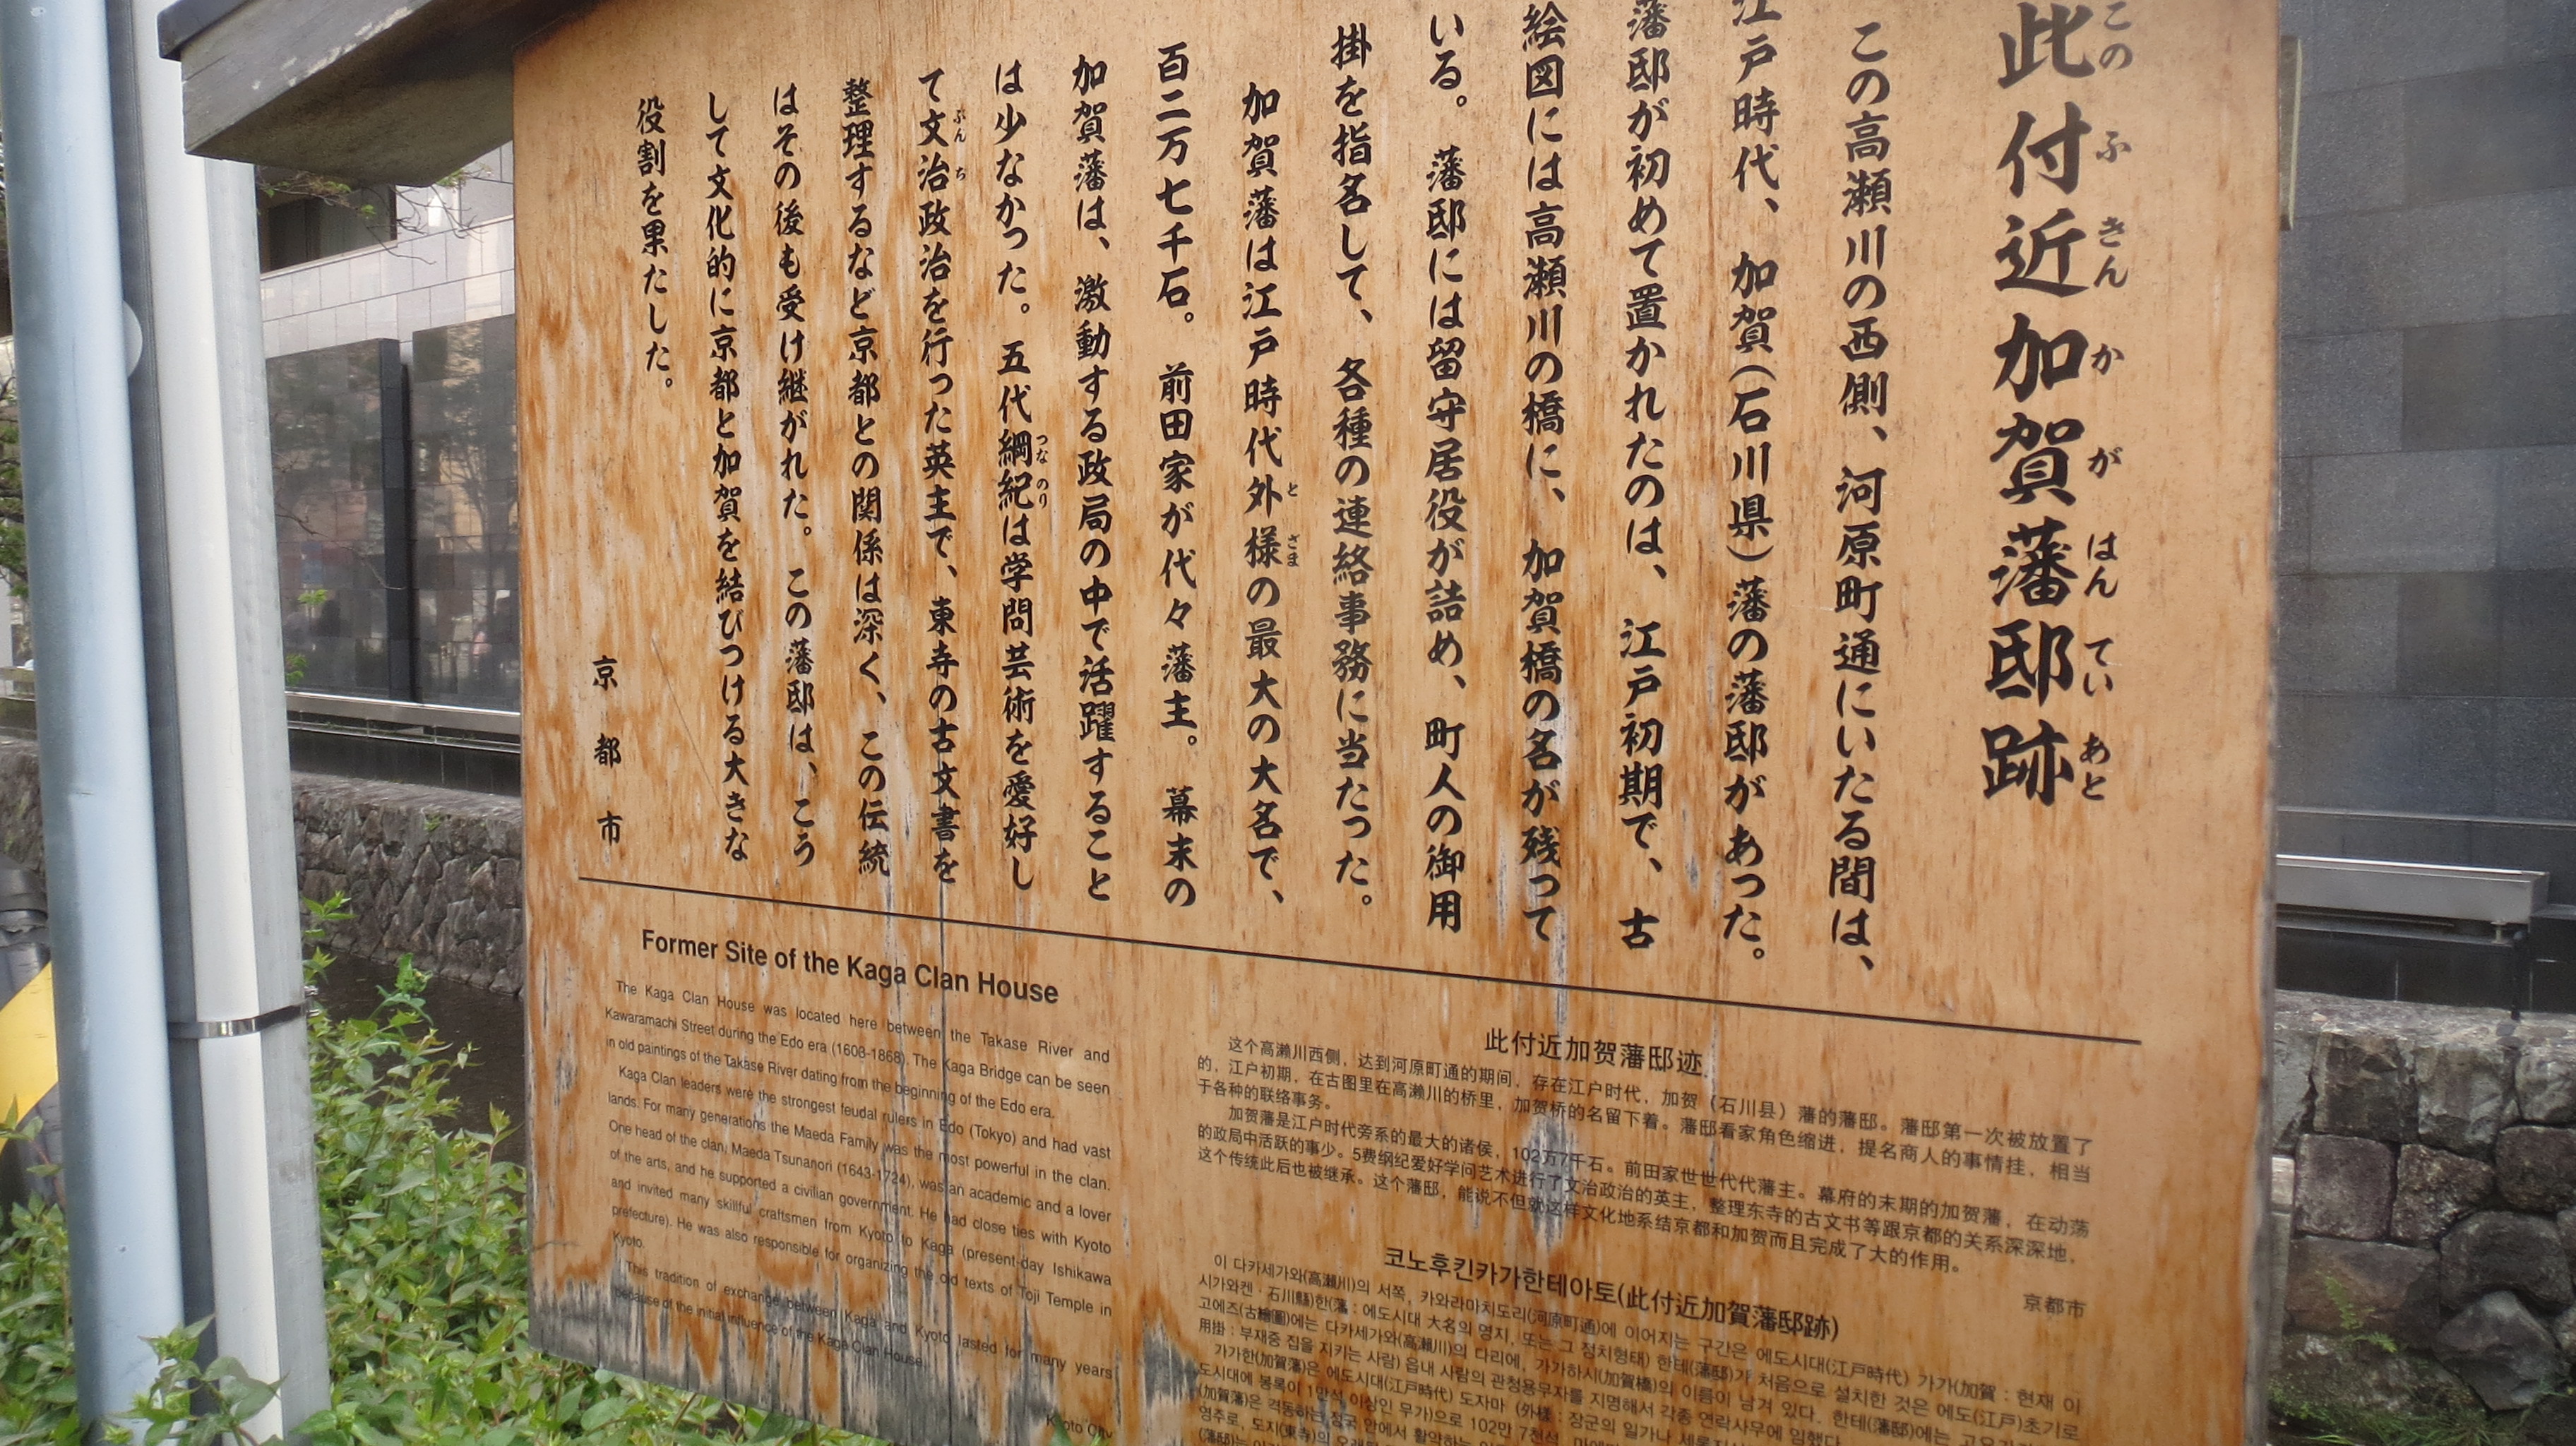 此付近加賀藩邸跡
このふきんかがはんていあと
この高瀬川の西側、河原町通にいたる間は、
江戸時代、加賀(石川県)藩の藩邸があった。
藩邸が初めて置かれたのは、江戸初期で、古
絵図には高瀬川の橋に、加賀橋の名が残って
いる。藩邸には留守居役が詰め、町人の御用
掛を指名して、各種の連絡事務に当たった。
加賀藩は江戸時代外様の最大の大名で、
とざま
百二万七千石。前田家が代々藩主。幕末の
加賀藩は、激動する政局の中で活躍すること
は少なかった。五代綱紀は学問芸術を愛好し
つなのり
て文治政治を行った英主で、東寺の古文書を
ぶんち
整理するなど京都との関係は深く、この伝統
はその後も受け継がれた。この藩邸は、こう
して文化的に京都と加賀を結びつける大きな
役割を果たした。
京都市
Former Site of the Kaga Clan House
The Kaga Clan House was located here between the Takase River and
Kawaramachi Street during the Edo era (1603-1868). The Kaga Bridge can be seen
in old paintings of the Takase River dating from the beginning of the Edo era.
Kaga Clan leaders were the strongest feudal rulers in Edo (Tokyo) and had vast
lands. For many generations the Maeda Family was the most powerful in the clan.
One head of the clan, Maeda Tsunanori (1643-1724), was an academic and a lover
of the arts, and he supported a civilian government. He had close ties with Kyoto
and invited many skillful craftsmen from Kyoto to Kaga (present-day Ishikawa
prefecture). He was also responsible for organizing the old texts of Toji Temple in
Kyoto.
This tradition of exchange between Kaga and Kyoto lasted for many years
because of the initial influence of the Kaga Clan House.
Kyoto City
此付近加贺藩邸迹
这个高濑川西侧，达到河原町通的期间，存在江户时代，加贺（石川县）藩的藩邸。藩邸第一次被放置了
的，江户初期，在古图里在高濑川的桥里，加贺桥的名留下着。藩邸看家角色缩进，提名商人的事情挂，相当
于各种的联络事务。
加贺藩是江户时代旁系的最大的诸侯，102万7千石。前田家世世代代藩主。幕府的末期的加贺藩，在动荡
的政局中活跃的事少。5费纲纪爱好学问艺术进行了文治政治的英主，整理东寺的古文书等跟京都的关系深深地，
这个传统此后也被继承。这个藩邸，能说不但就这样文化地系结京都和加贺而且完成了大的作用。
京都市
코노후킨카가한테아토(此付近加賀藩邸跡)
이 다카세가와(高瀬川)의 서쪽, 카와라마치도리(河原町通)에 이어지는 구간은 에도시대(江戸時代) 가가(加賀 : 현재 이
시가와켄 : 石川縣)한(藩 : 에도시대 大名의 영지, 또는 그 정치형태) 한테(藩邸)가 처음으로 설치한 것은 에도(江戸)초기로
고에즈(古繪圖)에는 다카세가와(高瀬川)의 다리에, 가가하시(加賀橋)의 이름이 남겨 있다. 한테(藩邸)에는
用掛 : 부재중 집을 지키는 사람) 읍내 사람의 관청용무자를 지명해서 각종 연락사무에 임했다.
가가한(加賀藩)은 에도시대(江戸時代) 도자마 (外様 : 장군의 일가나
도시대에 봉록이 1만석 이상인 무가)으로 102만 7천석.
(加賀藩)은 격동하는 정국 안에서 활약하는
영주로, 도지(東寺)의